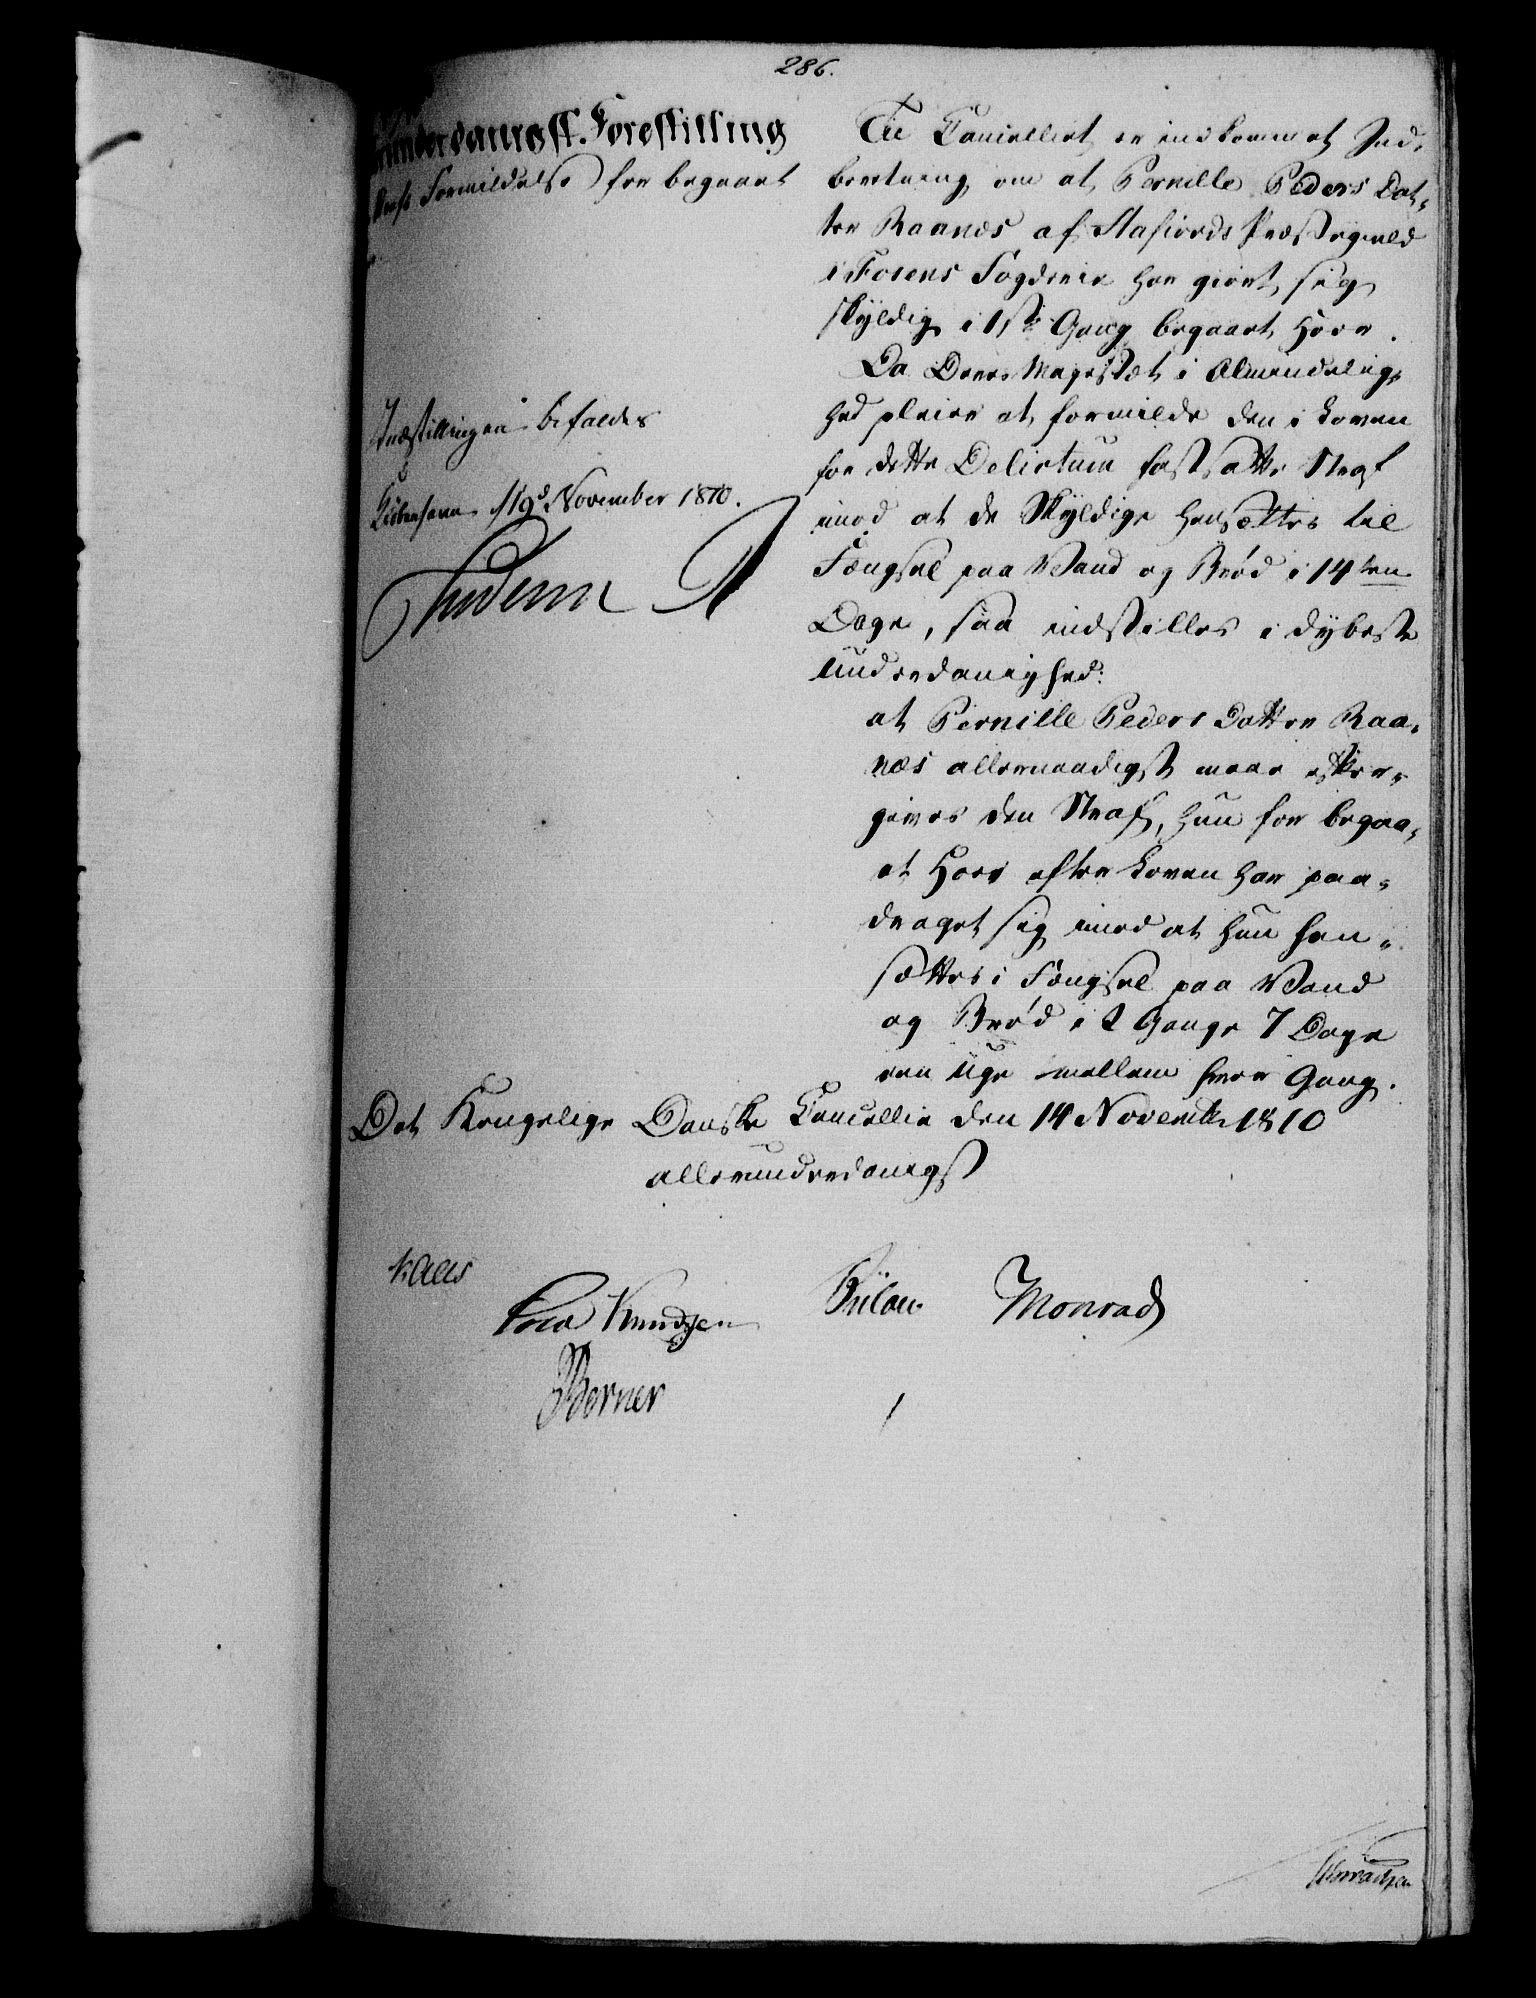 286.
allerunderdanigst. Forestilling
Straffs Formildelse for begaaet
Indstillingen befaldes
Kiöbenhavn d 19d November 1810.
Frederik R
Til Cancelliet er indkommet Ind-
beretning, om at Pernille Peders Dat-
ter Raanæs af Stafiords Præstegield
i Fosens Fogderie har giort sig
skyldig i 1ste Gang begaaet Hoer.
Da Deres Majestæt i Almindelig-
hed pleier at formilde den i Loven
for dette Delictum fastsatte Straf
imod at de Skyldige hensættes til
Fængsel paa Vand og Brød i 14ten
Dage, saa indstilles i dybeste
Underdanighed:
at Pernille Peders Datter Raa-
næs allernaadigst maae efter-
gives den Straf, hun for begaa-
et Hoer efter Loven har paa-
draget sig imod at hun hen-
sættes i Fængsel paa Vand
og Brød i 2 Gange 7 Dage
een Uge mellem hver Gang.
Det Kongelige Danske Cancellie den 14 Novembr 1810
allerunderdanigst
Kaas
Knudsen Bülow Monrad
Berner